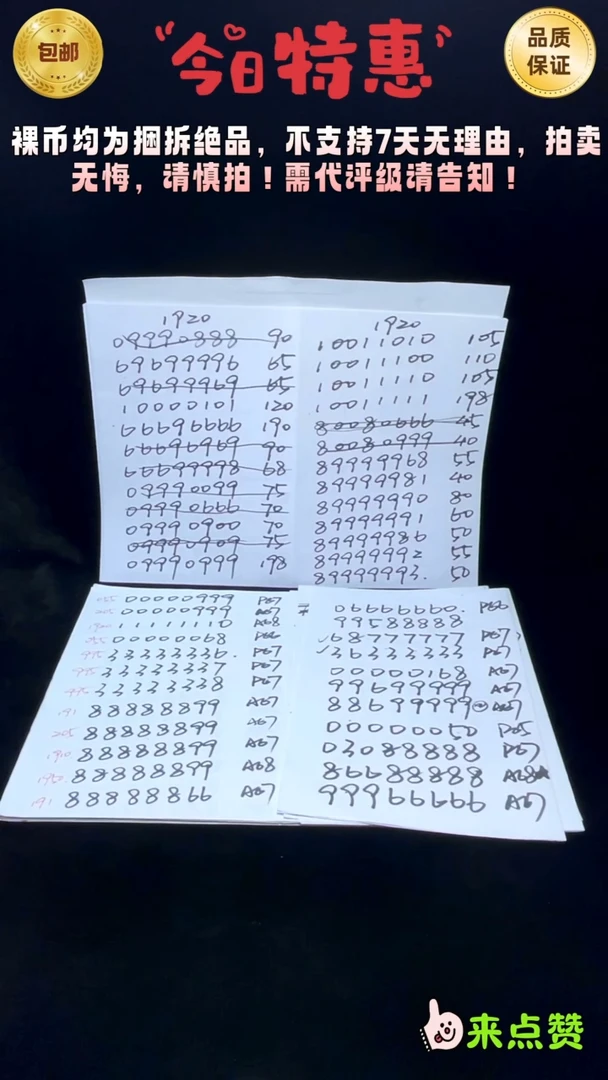 包邮
"今日特惠"
品质
保证
裸币均为捆拆绝品，不支持7天无理由，拍卖
无悔，请慎拍！需代评级请告知！
1920
09990888 90
69699996 65
69699969 65
10000101 120
66696666 190
66696969 90
66699998 68
09990099 75
09990666 70
09990900 70
09990909 75
09990999 198
1920
10011010 105
10011100 110
10011110 105
10011111 198
80080666 45
80080999 40
89999968 55
89999981 40
89999990 80
89999991 60
89999986 50
89999992 55
89999993. 50
00000999 P67
205 00000999 A67
11111110 A68
00000068 P66
33333336. P67
33333337 P67
33333338 P67
191 88888899 A67
205 88888899 A67
1910 88888899 A67
88888899 A68
191 88888866 A67
06666660. P66
99588888
✓68777777 P67
✓36333333 P67
00000168 A67
99699999 A67
88699999 A67
00000050 P65
03088888 P67
86688888 A68
99966666 A67
来点赞